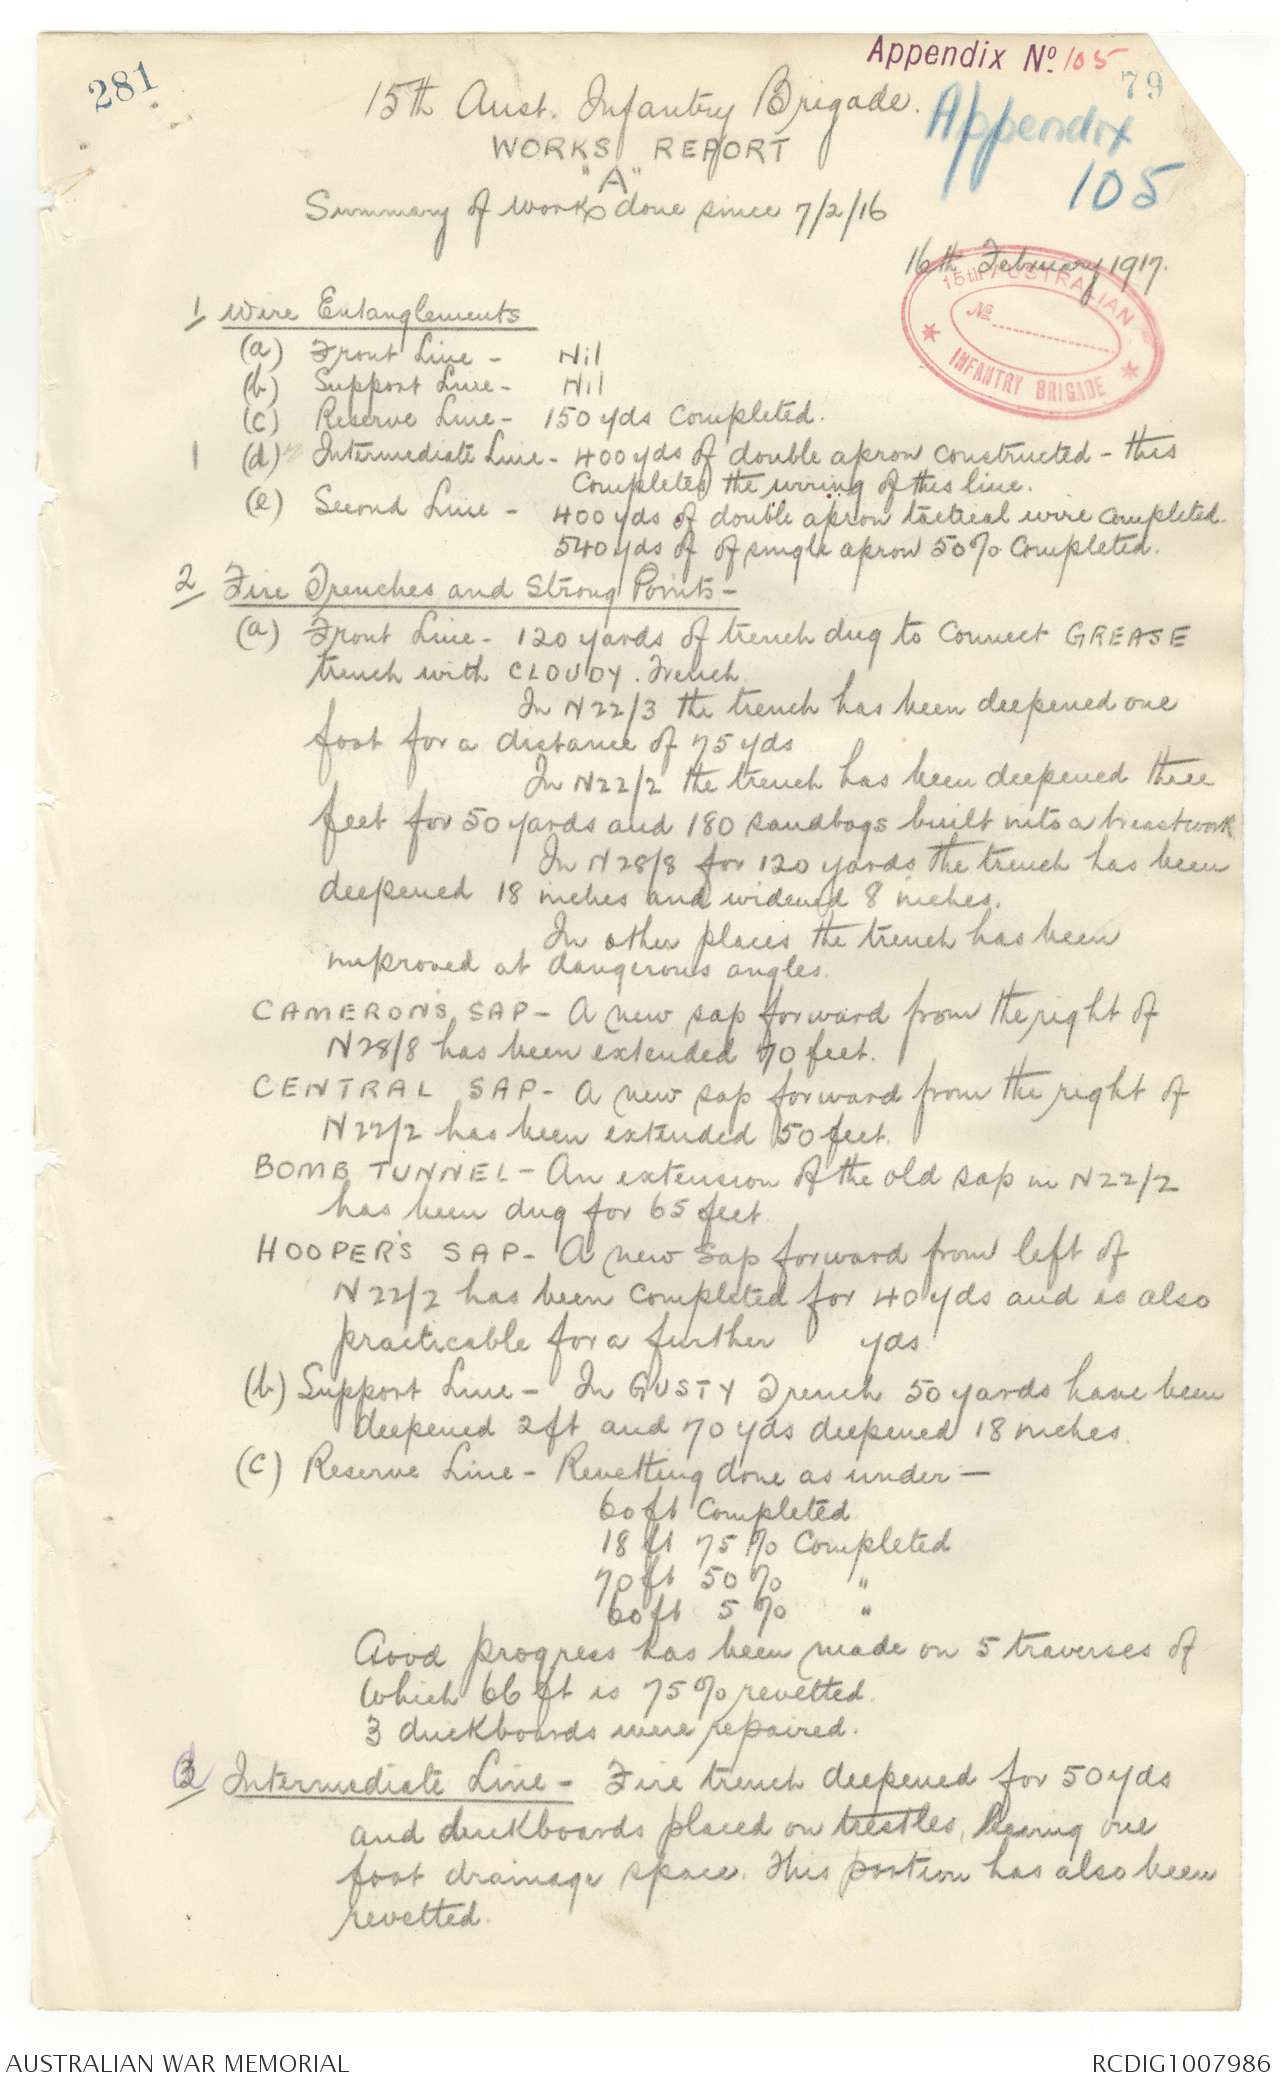 281
Appendix No. 105
79
15th Aust. Infantry Brigade.
Appendix
105
WORKS REPORT
"A"
Summary of works done since 7/2/16
16th February 1917.
15th AUSTRALIAN
No
INFANTRY BRIGADE
1/ Wire Entanglements
(a) Front Line - Nil
(b) Support Line - Nil
(c) Reserve Line - 150 yds completed.
1 (d) Intermediate Line - 400 yds of double apron constructed - this
completes the wiring of this line.
(e) Second Line - 400 yds of double apron tactical wire completed.
540 yds of of single apron 50% completed.
2/ Fire Trenches and Strong Points -
(a) Front Line - 120 yards of trench dug to connect GREASE
trench with CLOUDY. Trench.
In N22/3 the trench has been deepened one
foot for a distance of 75 yds
In N22/2 the trench has been deepened three
feet for 50 yards and 180 sandbags built into a breastwork
In N28/8 for 120 yards the trench has been
deepened 18 inches and widened 8 inches.
In other places the trench has been
improved at dangerous angles.
CAMERON'S SAP - A new sap forward from the right of
N28/8 has been extended 70 feet.
CENTRAL SAP - A new sap forward from the right of
N22/2 has been extended 50 feet.
BOMB TUNNEL - An extension of the old sap in N22/2
has been dug for 65 feet.
HOOPER'S SAP - A new sap forward from left of
N22/2 has been completed for 40 yds and is also
practicable for a further yds
(b) Support Line - In GUSTY Trench 50 yards have been
deepened 2ft and 70 yds deepened 18 inches.
(c) Reserve Line - Revetting done as under -
60 ft Completed
18 ft 75% Completed
70 ft 50% "
60 ft 5% "
Good progress has been made on 5 traverses of
which 66 ft is 75% revetted.
3 duckboards were repaired.
Intermediate Line - Fire trench deepened for 50 yds
and duckboards placed on trestles, leaving one
foot drainage space. This portion has also been
revetted.
AUSTRALIAN WAR MEMORIAL
RCDIG1007986